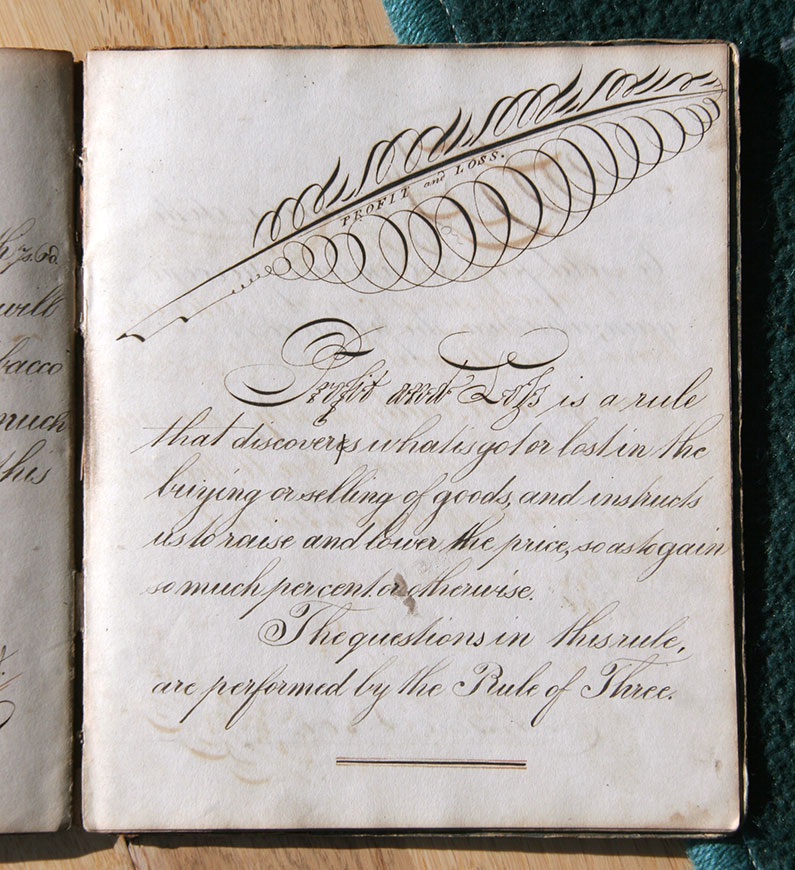 PROFIT and LOSS.
Profit and Loss is a rule
that discovers what is got or lost in the
buying or selling of goods, and instructs
us to raise and lower the price, so as to gain
so much per cent. or otherwise.
The questions in this rule,
are performed by the Rule of Three.
will
much
this